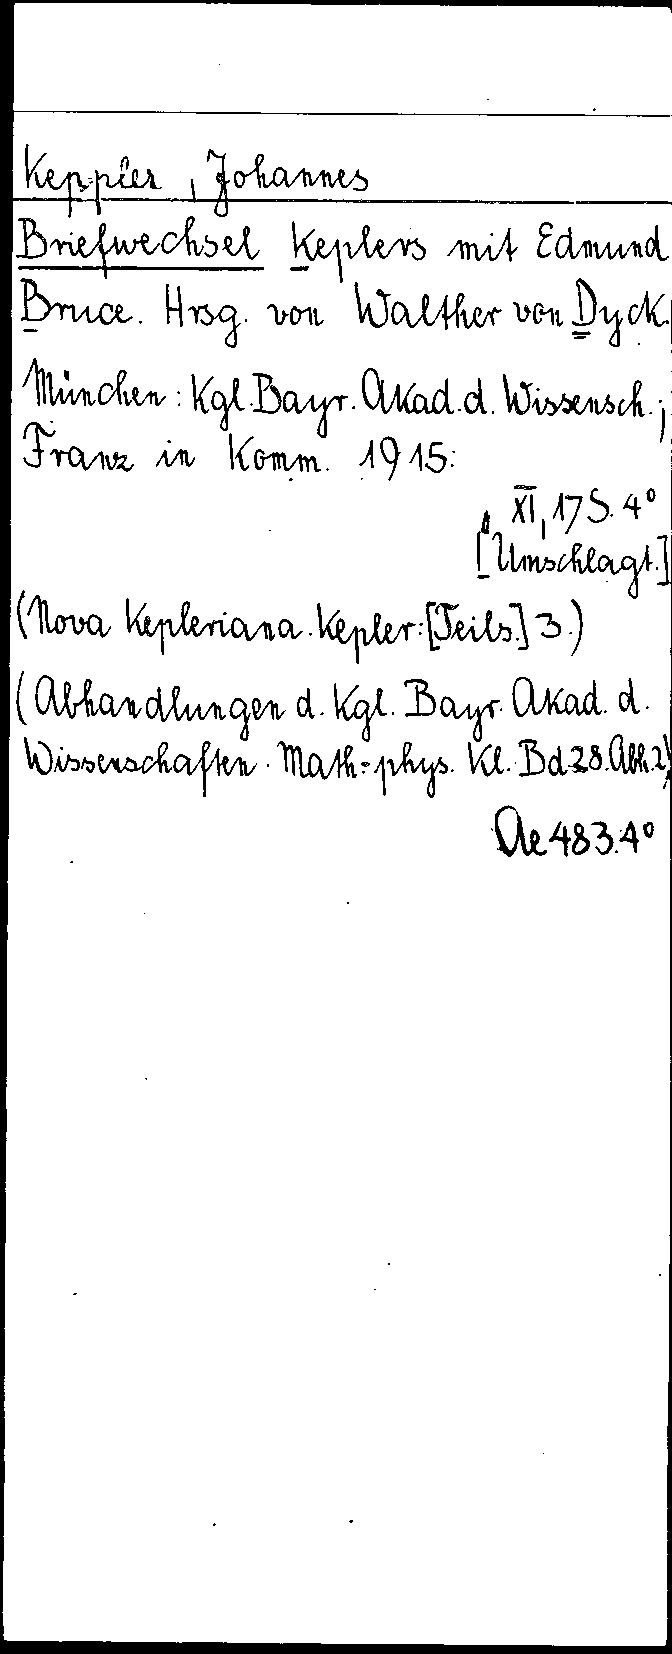 Keppler, Johannes
Briefwechsel Keplers mit Edmund
Bruce. Hrsg. von Walther von Dyck.
München: Kgl. Bayr. Akad. d. Wissensch.;
Franz in Komm. 1915.
XI, 17 S. 4°
[Umschlagt.]
(Nova Kepleriana. Kepler: [Teils.] 3.)
(Abhandlungen d. Kgl. Bayr. Akad. d.
Wissenschaften. Math.-phys. Kl. Bd. 28. Abh. 2)
Ae 483.4°